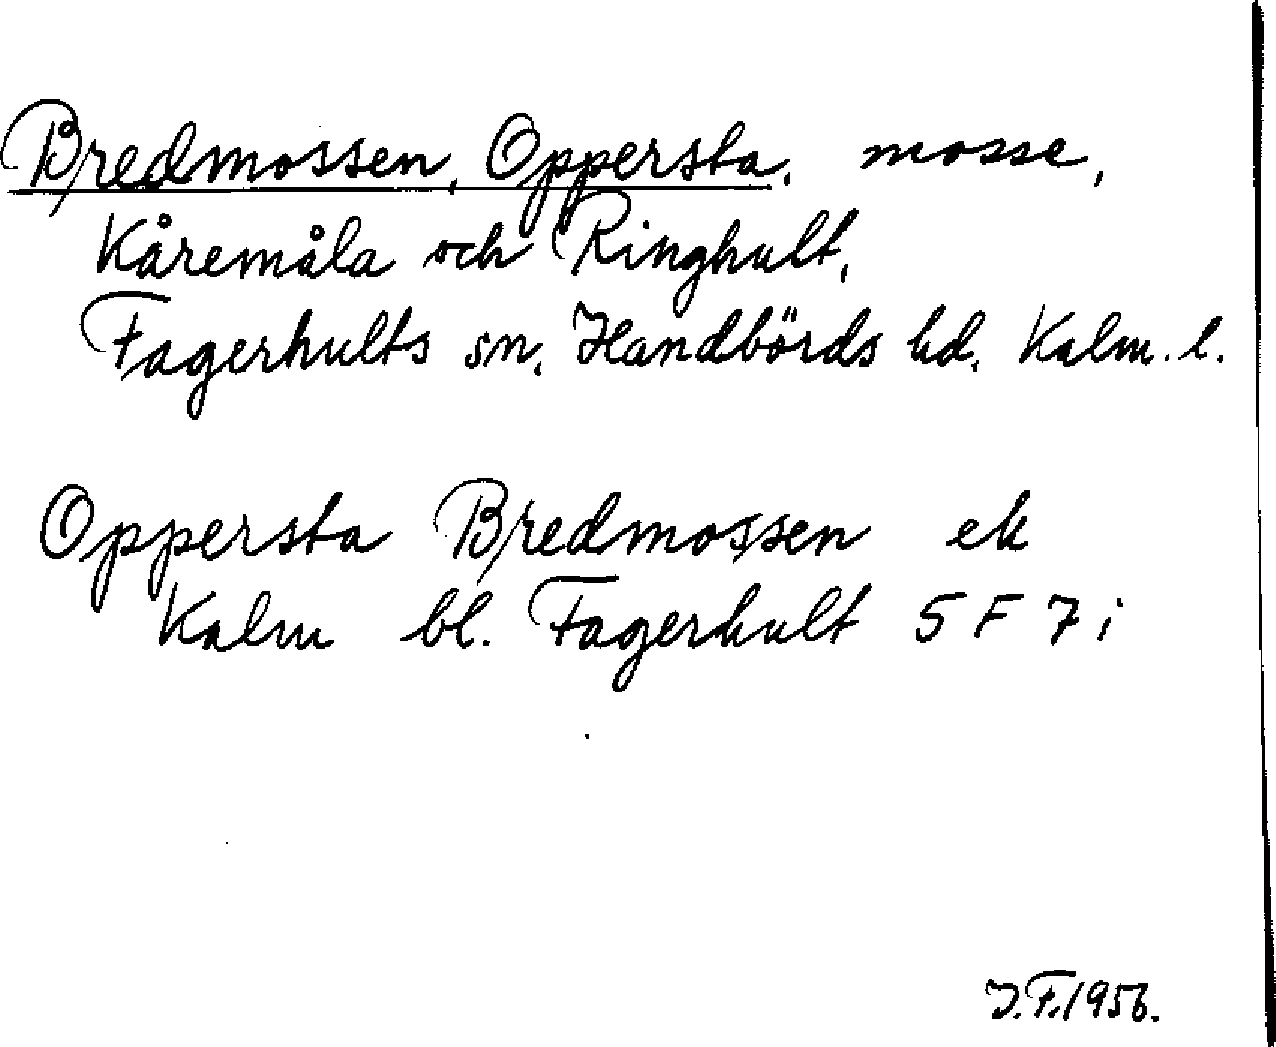 Bredmossen, Oppersta, mosse,
Kåremåla och Ringhult,
Fagerhults sn. Handbörds hd. Kalm. l.
Oppersta Bredmossen ek
Kalm bl. Fagerhult 5 F 7 i
J.F. 1956.